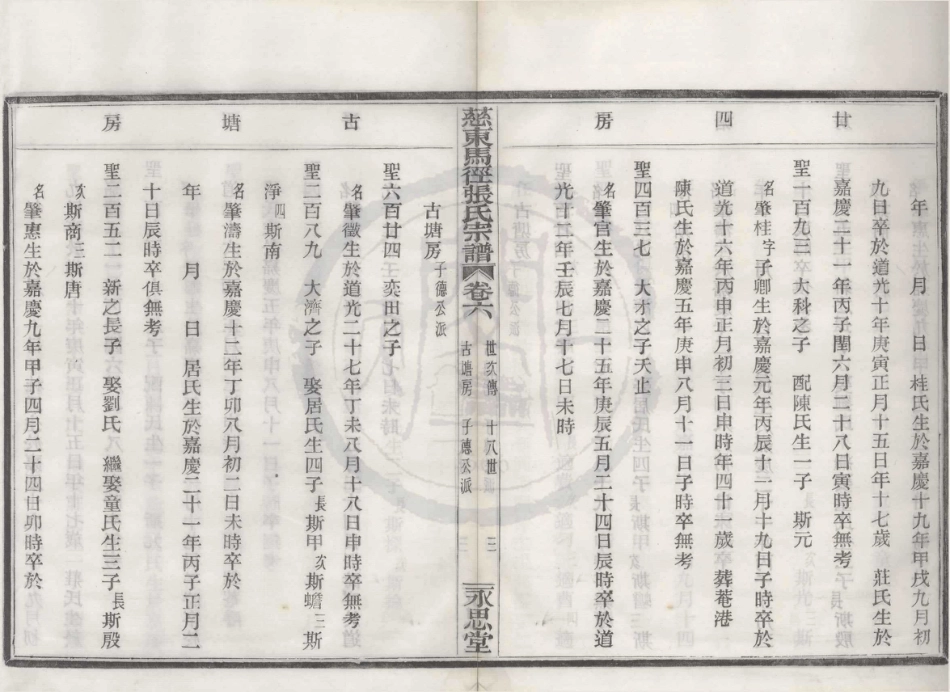 廿四房
年　月　日　桂氏生於嘉慶十九年甲戌九月初
九日卒於道光十年庚寅正月十五日年十七歲　莊氏生於
嘉慶二十一年丙子閏六月二十八日寅時卒無考
聖一百九三　大科之子　配陳氏生一子　斯元
名肇桂字子卿生於嘉慶元年丙辰十一月十九日子時卒於
道光十六年丙申正月初三日申時年四十一歲　葬菴港
陳氏生於嘉慶五年庚申八月十一日子時卒無考
聖四百三七　大才之子夭止
名肇官生於嘉慶二十五年庚辰五月二十四日辰時卒於道
光廿二年壬辰七月十七日未時
慈東馬徑張氏宗譜　卷六
世次傳　十八世　三
古塘房　子德公派
永思堂
古塘房
古塘房子德公派
聖六百廿四　奕田之子
名肇徵生於道光二十七年丁未八月十八日申時卒無考
聖二百八九　大濟之子　娶居氏生四子長斯甲次斯蟾三斯
淨四斯南
名肇濤生於嘉慶十二年丁卯八月初二日未時卒於
年　月　日　居氏生於嘉慶二十一年丙子正月二
十日辰時卒俱無考
聖二百五二　一新之長子　娶劉氏　繼娶童氏生三子長斯殷
次斯商三斯唐
名肇惠生於嘉慶九年甲子四月二十四日卯時卒於